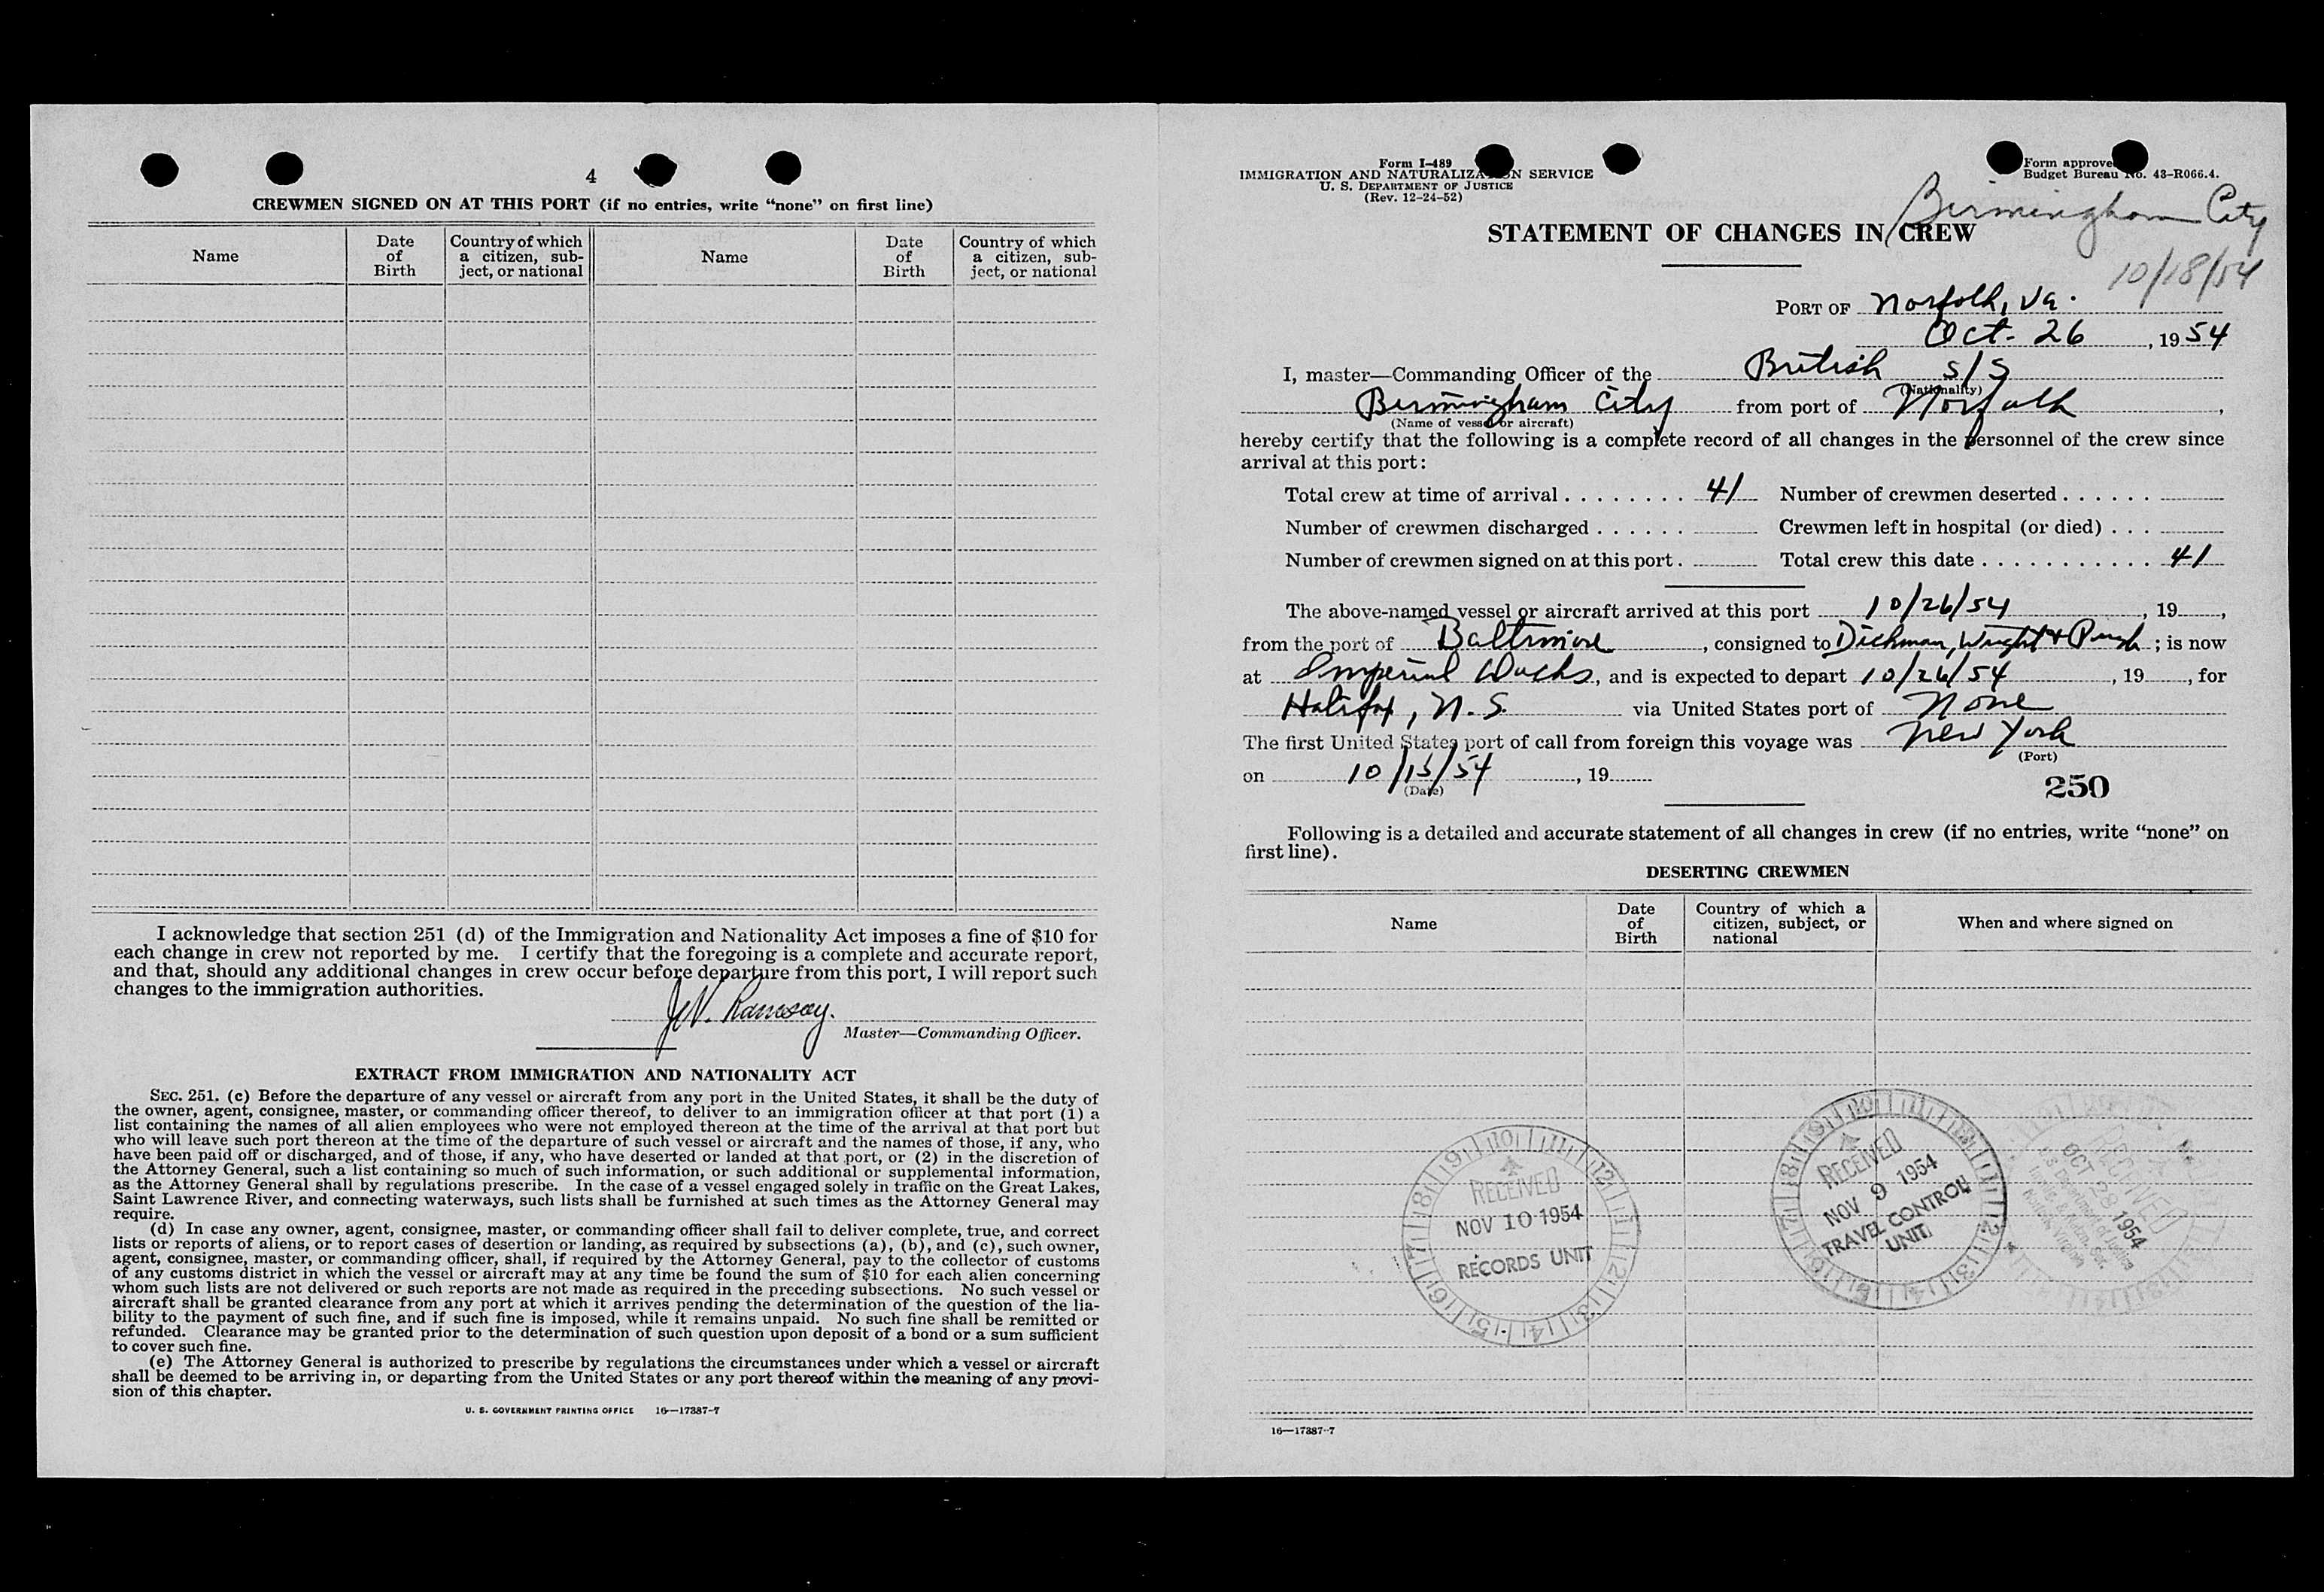 4
CREWMEN SIGNED ON AT THIS PORT (if no entries, write “none” on first line)
Name
Date of Birth
Country of which a citizen, subject, or national
Name
Date of Birth
Country of which a citizen, subject, or national
I acknowledge that section 251 (d) of the Immigration and Nationality Act imposes a fine of $10 for
each change in crew not reported by me. I certify that the foregoing is a complete and accurate report,
and that, should any additional changes in crew occur before departure from this port, I will report such
changes to the immigration authorities.
Ramsay.
Master—Commanding Officer.
EXTRACT FROM IMMIGRATION AND NATIONALITY ACT
SEC. 251. (c) Before the departure of any vessel or aircraft from any port in the United States, it shall be the duty of
the owner, agent, consignee, master, or commanding officer thereof, to deliver to an immigration officer at that port (1) a
list containing the names of all alien employees who were not employed thereon at the time of the arrival at that port but
who will leave such port thereon at the time of the departure of such vessel or aircraft and the names of those, if any, who
have been paid off or discharged, and of those, if any, who have deserted or landed at that port, or (2) in the discretion of
the Attorney General, such a list containing so much of such information, or such additional or supplemental information,
as the Attorney General shall by regulations prescribe. In the case of a vessel engaged solely in traffic on the Great Lakes,
Saint Lawrence River, and connecting waterways, such lists shall be furnished at such times as the Attorney General may
require.
(d) In case any owner, agent, consignee, master, or commanding officer shall fail to deliver complete, true, and correct
lists or reports of aliens, or to report cases of desertion or landing, as required by subsections (a), (b), and (c), such owner,
agent, consignee, master, or commanding officer, shall, if required by the Attorney General, pay to the collector of customs
of any customs district in which the vessel or aircraft may at any time be found the sum of $10 for each alien concerning
whom such lists are not delivered or such reports are not made as required in the preceding subsections. No such vessel or
aircraft shall be granted clearance from any port at which it arrives pending the determination of the question of the lia-
bility to the payment of such fine, and if such fine is imposed, while it remains unpaid. No such fine shall be remitted or
refunded. Clearance may be granted prior to the determination of such question upon deposit of a bond or a sum sufficient
to cover such fine.
(e) The Attorney General is authorized to prescribe by regulations the circumstances under which a vessel or aircraft
shall be deemed to be arriving in, or departing from the United States or any port thereof within the meaning of any provi-
sion of this chapter.
U. S. GOVERNMENT PRINTING OFFICE 16—17387-7
Form I-489
IMMIGRATION AND NATURALIZATION SERVICE
U. S. DEPARTMENT OF JUSTICE
(Rev. 12-24-52)
Form approved
Budget Bureau No. 43-R066.4.
Birmingham City
10/18/54
STATEMENT OF CHANGES IN CREW
PORT OF Norfolk, Va.
Oct. 26, 1954
I, master—Commanding Officer of the British S/S
(Nationality)
Birmingham City from port of Norfolk,
(Name of vessel or aircraft)
hereby certify that the following is a complete record of all changes in the personnel of the crew since
arrival at this port:
Total crew at time of arrival . . . . . . . . 41 Number of crewmen deserted . . . . . .
Number of crewmen discharged . . . . . . Crewmen left in hospital (or died) . . .
Number of crewmen signed on at this port . Total crew this date . . . . . . . . . . . 41
The above-named vessel or aircraft arrived at this port 10/26/54, 19 ,
from the port of Baltimore, consigned to Dichman, Wright & Pugh; is now
at Imperial Docks, and is expected to depart 10/26/54, 19 , for
Halifax, N.S. via United States port of None
The first United States port of call from foreign this voyage was New York
(Port)
on 10/15/54, 19
(Date)
250
Following is a detailed and accurate statement of all changes in crew (if no entries, write “none” on
first line).
DESERTING CREWMEN
Name
Date of Birth
Country of which a citizen, subject, or national
When and where signed on
RECEIVED
NOV 10 1954
RECORDS UNIT
RECEIVED
NOV 9 1954
TRAVEL CONTROL
UNIT
RECEIVED
OCT 28 1954
16—17387-7